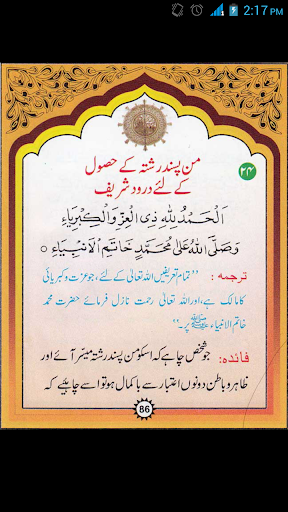 2:17 PM
من پسند رشتہ کے حصول
کے لئے درود شریف
۲۴
اَلْحَمْدُ لِلّٰهِ ذِی الْعِزِّ وَالْکِبْرِیَآءِ
وَصَلَّی اللّٰهُ عَلٰی مُحَمَّدٍ خَاتَمِ الْاَنْبِیَآءِ ○
ترجمہ : ”تمام تعریفیں اللہ تعالٰی کے لئے، جو عزت و کبریائی
کا مالک ہے، اور اللہ تعالٰی رحمت نازل فرمائے حضرت محمد
خاتم الانبیاء ﷺ پر۔“
فائدہ: جو شخص چاہے کہ اسکو من پسند رشتہ میسر آئے اور
ظاہر و باطن دونوں اعتبار سے باکمال ہو تو اسے چاہیے کہ
86